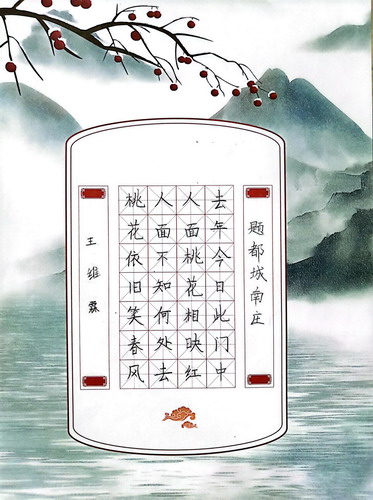 题都城南庄
去年今日此门中
人面桃花相映红
人面不知何处去
桃花依旧笑春风
王维霖